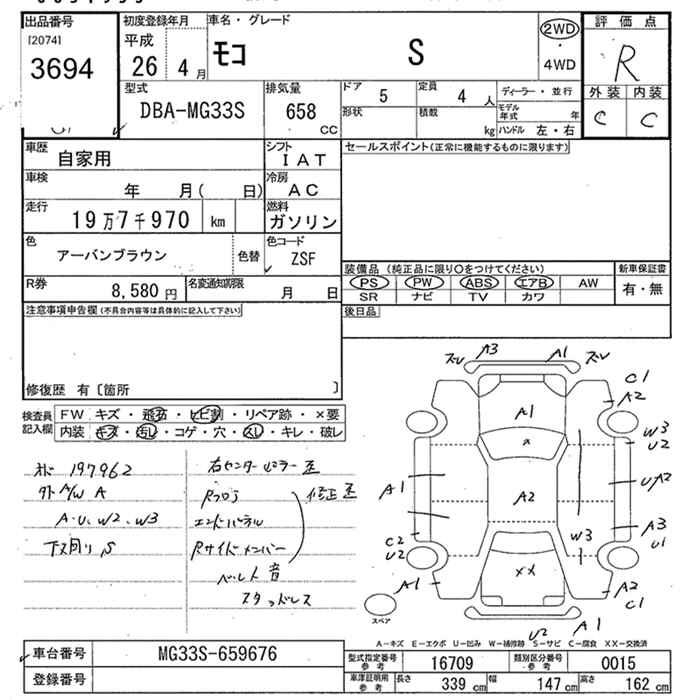 出品番号 初度登録年月 車名・グレード 評価点
[2074] 平成 2WD
3694 26 4月 モコ S ・ 4WD R
型式 排気量 ドア 5 定員 4人 ディーラー・並行 外装 内装
DBA-MG33S 658 cc 形状 積載 kg モデル年式 年 C C
ハンドル 左・右
車歴 自家用 シフト IAT セールスポイント(正常に機能するものに限ります)
車検 年 月( 日) 冷房 AC
走行 19万7千970 km 燃料 ガソリン
色 アーバンブラウン 色替 色コード ZSF
装備品 (純正品に限り○をつけてください) 新車保証書
R券 8,580円 名変通知期限 月 日 PS PW ABS エアB AW 有・無
SR ナビ TV カワ
注意事項申告欄(不具合内容等は具体的に記入して下さい) 後日品
修復歴 有〔箇所 〕
検査員記入欄 FW キズ・飛石・ヒビ割・リペア跡・×要
内装 キズ・汚レ・コゲ・穴・スレ・キレ・破レ
197962 右センターピラー歪
外A/W A Rフロア 修正歪
A・U、W2、W3 エンドパネル
下廻り S Rサイドメンバー
ベルト音
スタッドレス
A3 A1
C1
A1 A2
W3
U2
A1 A2 UA2
A3
C2 W3 U1
U2
A1 XX A2
C1
スペア
U2 A1
A-キズ E-エクボ U-凹み W-補修跡 S-サビ C-腐食 XX-交換済
車台番号 MG33S-659676 型式指定番号 参考 16709 類別区分番号 参考 0015
登録番号 車庫証明用 参考 長さ 339cm 幅 147cm 高さ 162cm